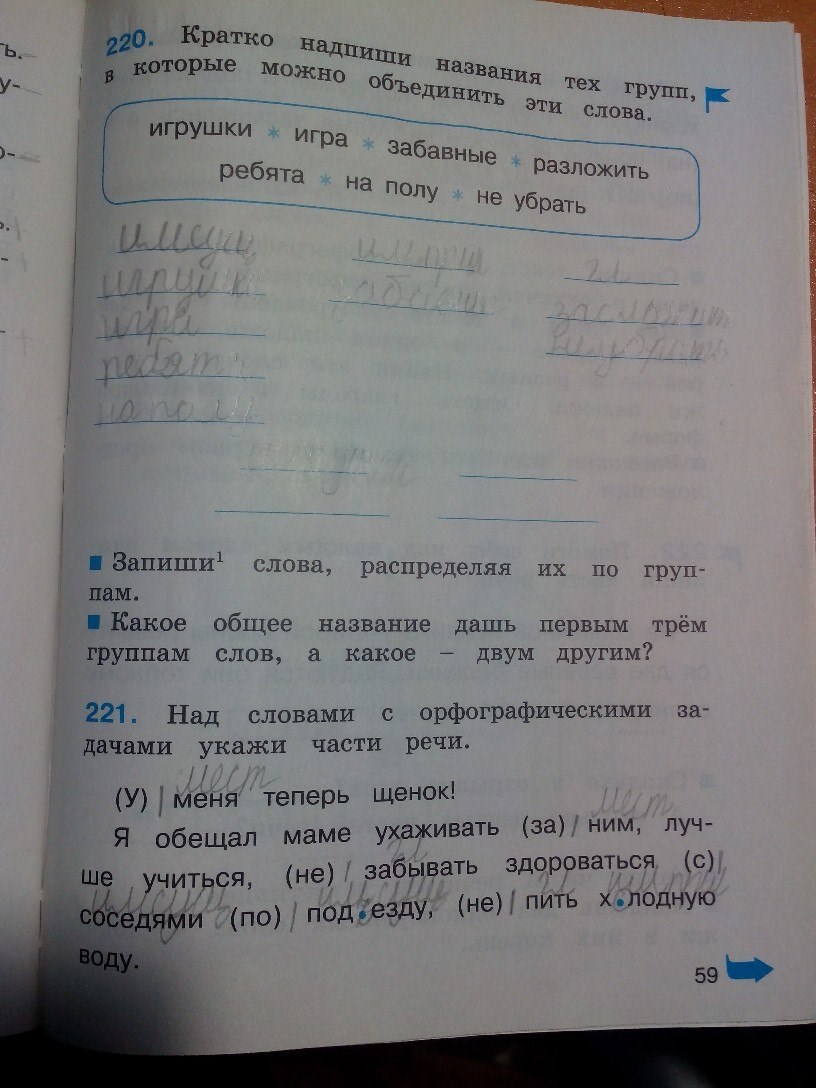 ть.
у-
о-
ь.
-
-
220. Кратко надпиши названия тех групп,
в которые можно объединить эти слова.
игрушки * игра * забавные * разложить
ребята * на полу * не убрать
имсущ
игрушк
игра
ребят
на полу
гл
Запиши¹ слова, распределяя их по груп-
пам.
Какое общее название дашь первым трём
группам слов, а какое – двум другим?
221. Над словами с орфографическими за-
дачами укажи части речи.
мест
(У) | меня теперь щенок!
мест
Я обещал маме ухаживать (за) | ним, луч-
гл
ше учиться, (не) | забывать здороваться (с) |
имсущ имсущ гл
соседями (по) | под.езду, (не) | пить х.лодную
воду.
59